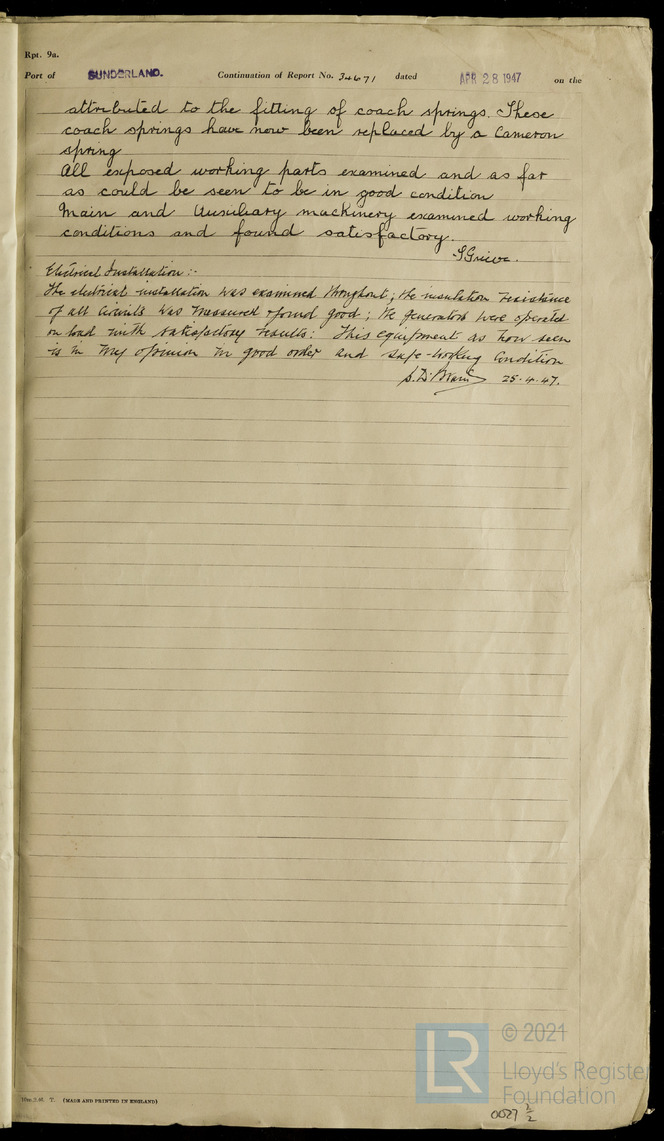 Rpt. 9a.
Port of SUNDERLAND. Continuation of Report No. 34671 dated APR 28 1947 on the
attributed to the fitting of coach springs. These
coach springs have now been replaced by a Cameron
spring
All exposed working parts examined and as far
as could be seen to be in good condition
Main and Auxiliary machinery examined working
conditions and found satisfactory.
S Grieve.
Electrical Installation :-
The electrical installation was examined throughout; the insulation resistance
of all circuits was measured & found good; the generators were operated
on load with satisfactory results: This equipment as now seen
is in my opinion in good order and safe-working condition
25.4.47.
(MADE AND PRINTED IN ENGLAND)
LR © 2021
Lloyd's Register
Foundation
0027 2/2